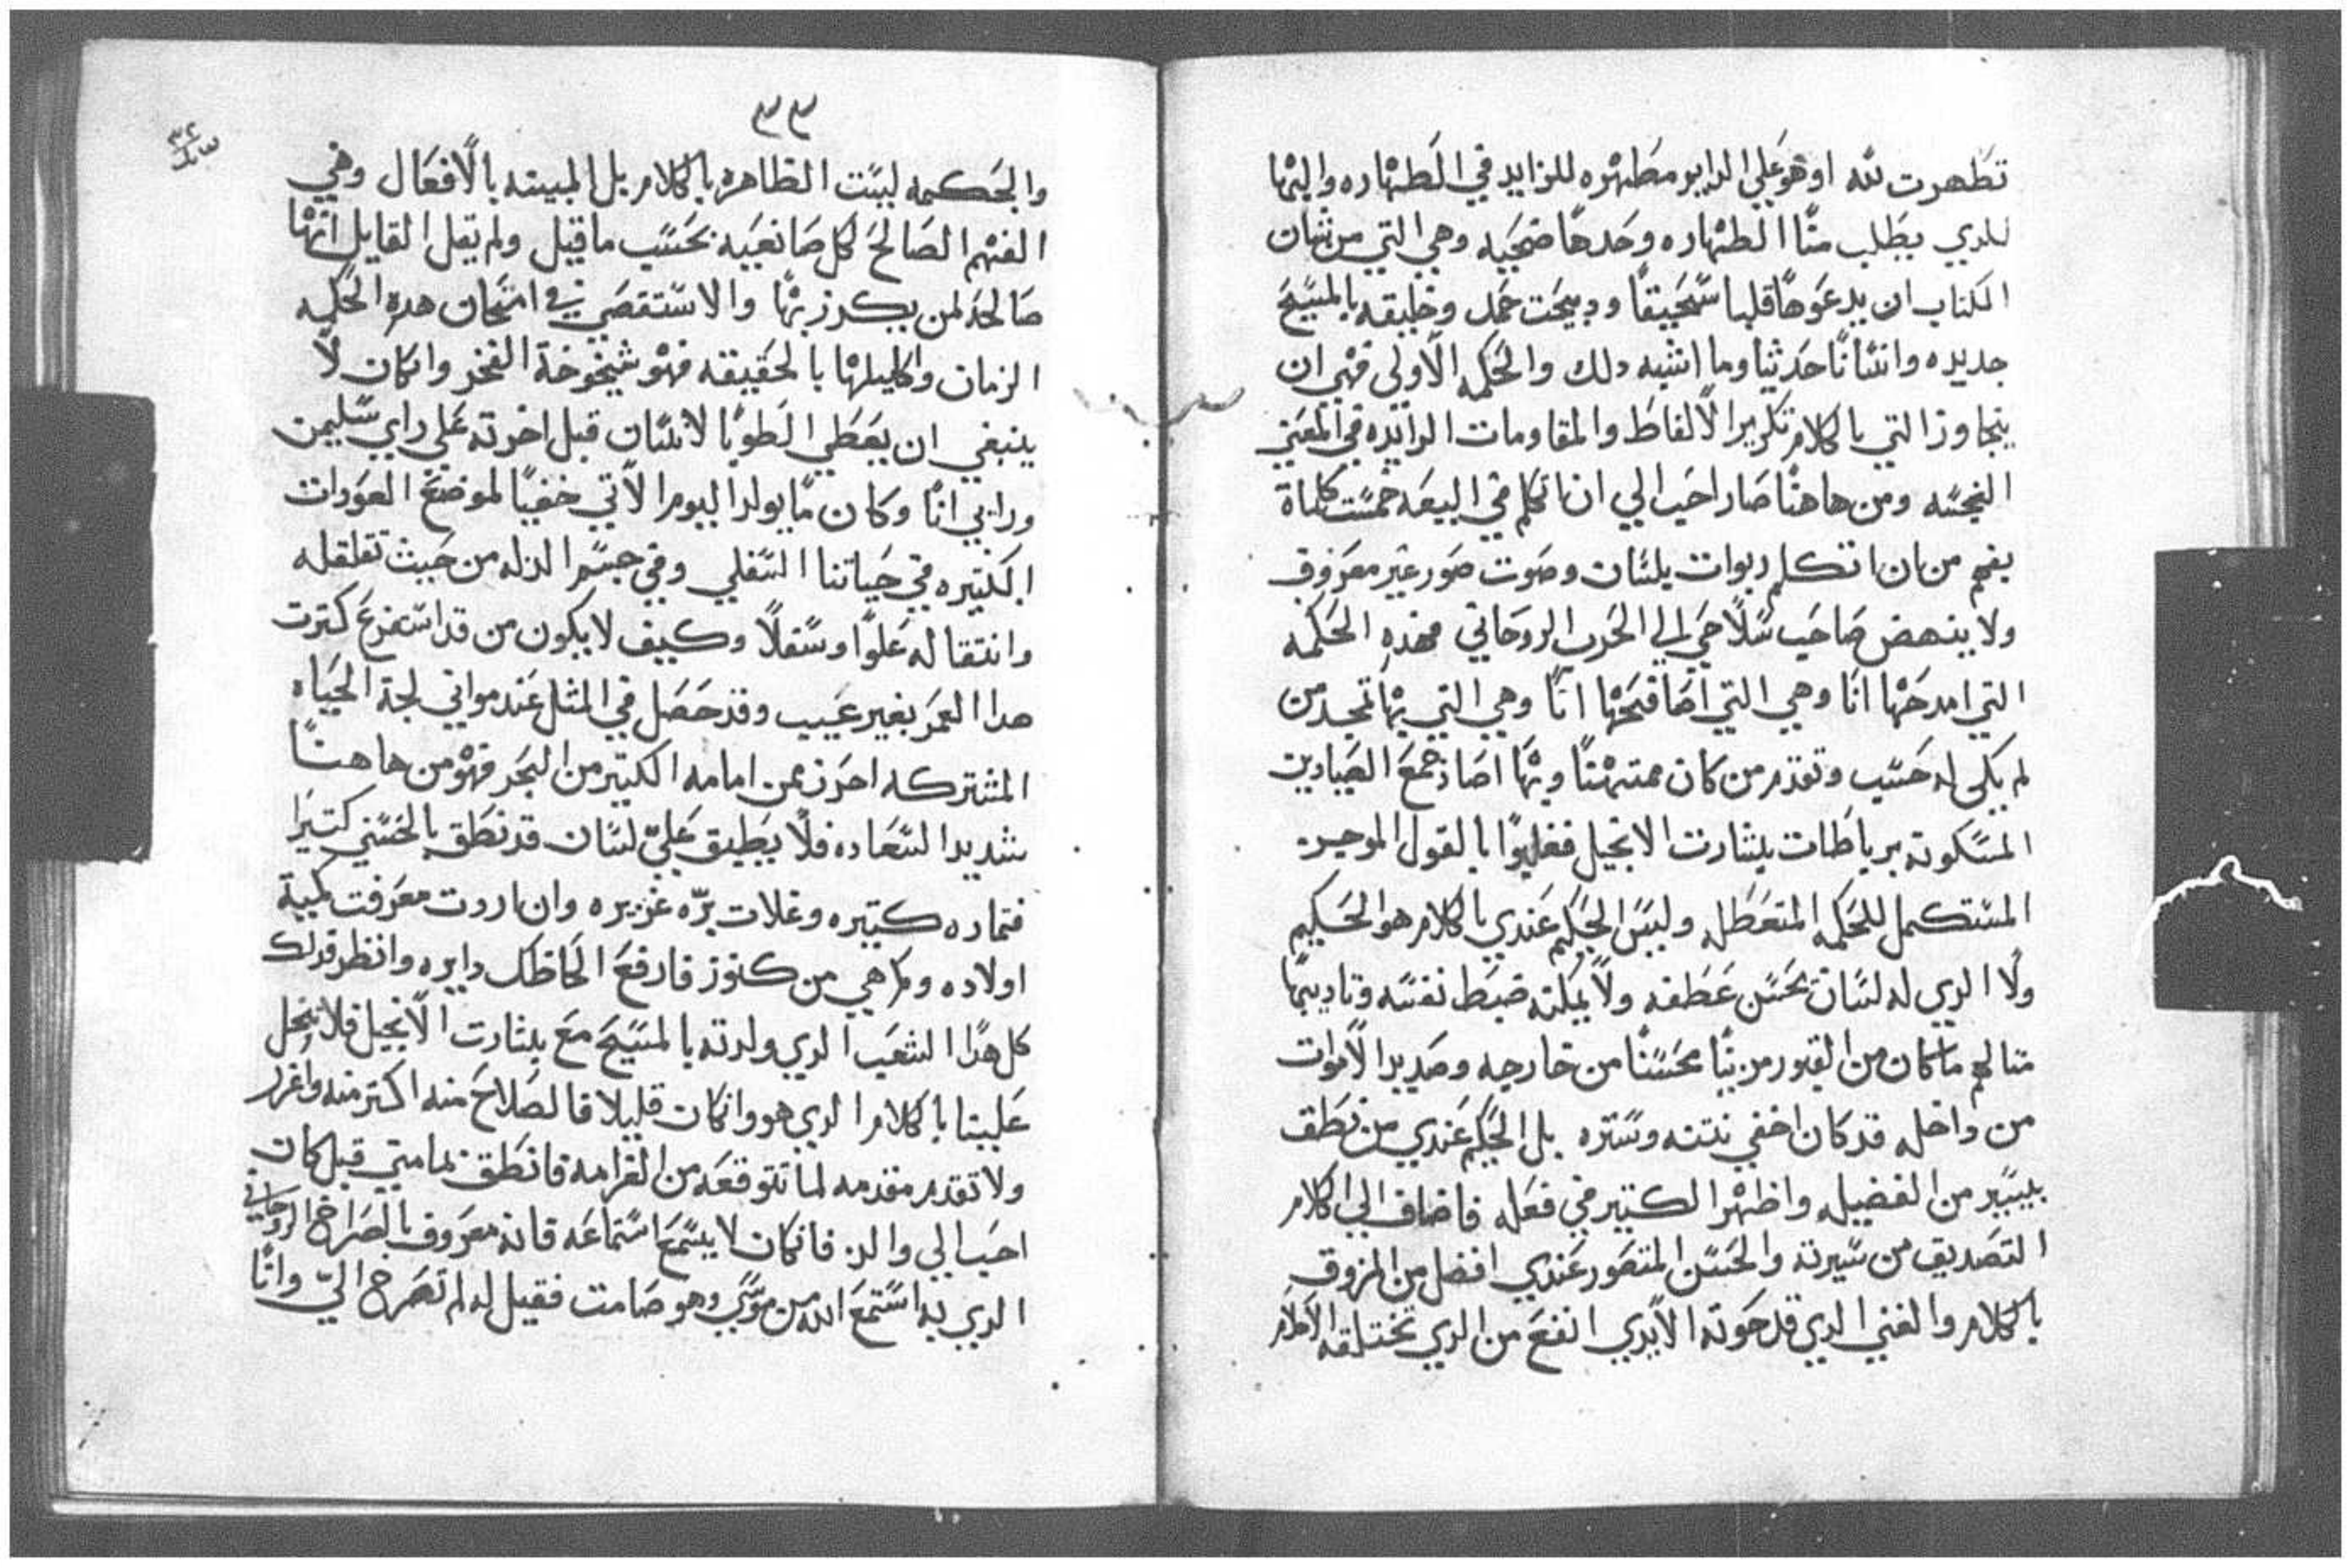 تطهرت لله او هو علي الدايم مطهره للزايد في الطهاره واليها
للدي يطلب منا الطهاره وحدها ضحيه وهي التي من شان
الكتاب ان يدعوها قلبا سحيقا ودبيحت حمد وخليقه بالمسيح
جديده وانسانا حديثا وما اشبه دلك والحكمه الاولي فهي ان
يتجاوز التي بالكلام تكرير الالفاظ والمقاومات الزايده في المعني
النجسه ومن هاهنا صار احب الي ان اتكلم في البيعه خمست كلماة
بفهم من ان اتكلم ربوات بلسان وصوت صور غير معروف
ولا ينهض صاحب سلاحي الي الحرب الروحاني فهده الحكمه
التي امدحها انا وهي التي اصافحها انا وهي التي بها تمجد من
لم يكن له حسب وتقدم من كان ممتهنا وبها اصاد جمع الصيادين
المسكونه برباطات بشارت الانجيل فغلبوا بالقول الموجز
المستكمل للحكمه المتعطله وليس الحكيم عندي بالكلام هو الحكيم
ولا الدي له لسان بحسن عطفه ولا يمكنه ضبط نفسه وتاديبها
مثالهم ما كان من القبور مزينا محسنا من خارجه وصديد الاموات
من داخله قد كان اخفي نتنه وستره بل الحكيم عندي من نطق
بيسير من الفضيله واظهر الكتير في فعله فاضاف الي الكلام
التصديق من سيرته والحسن المتصور عندي افضل من المزوق
بالكلام والغني الدي قد حوته الايدي انفع من الدي تختلقه الاحلام
٣٣
والحكمه ليست الظاهره بالكلام بل المبينه بالافعال وهي
الفهم الصالح لكل صانعيه بحسب ما قيل ولم يقل القايل انها
صالحه لمن يكرز بها والاستقصي في امتحان هده الحكمه
الزمان واكليلها بالحقيقه فهو شيخوخة الفخر وان كان لا
ينبغي ان يعطي الطوبا لانسان قبل اخرته علي راي سليمن
ورايي انا وكان ما يولد اليوم الاتي خفيا لموضع العودات
الكتيره في حياتنا السفلي وفي جسم المدله من حيث تقلقله
وانتقاله علوا وسفلا وكيف لا يكون من قد استفرغ كترت
هدا العمر بغير عيب وقد حصل في المثل عند مواني لجة الحياه
المشتركه احرز ممن امامه الكتير من البحر فهو من هاهنا
شديد السعاده فلا يطيق علي لسان قد نطق بالحسني كتيرا
فتماره كتيره وغلات بره غزيره وان اردت معرفت كمية
اولاده وكم هي من كنوز فارفع الحاظك دايره وانظر فدلك
كل هدا الشعب الدي ولدته بالمسيح مع بشارت الانجيل فلا تبخل
علينا بالكلام الدي هو وان كان قليلا فالصلاح منه اكتر منه واغزر
ولا تقدم مقدمه لما تتوقعه من الغرامه فانطق بما متي قيل كان
احب الي والد فان كان لا يسمع استماعه فانه معروف بالصراخ الروحاني
الدي به استمع الله من موسي وهو صامت فقيل له لم تصرخ الي وانا